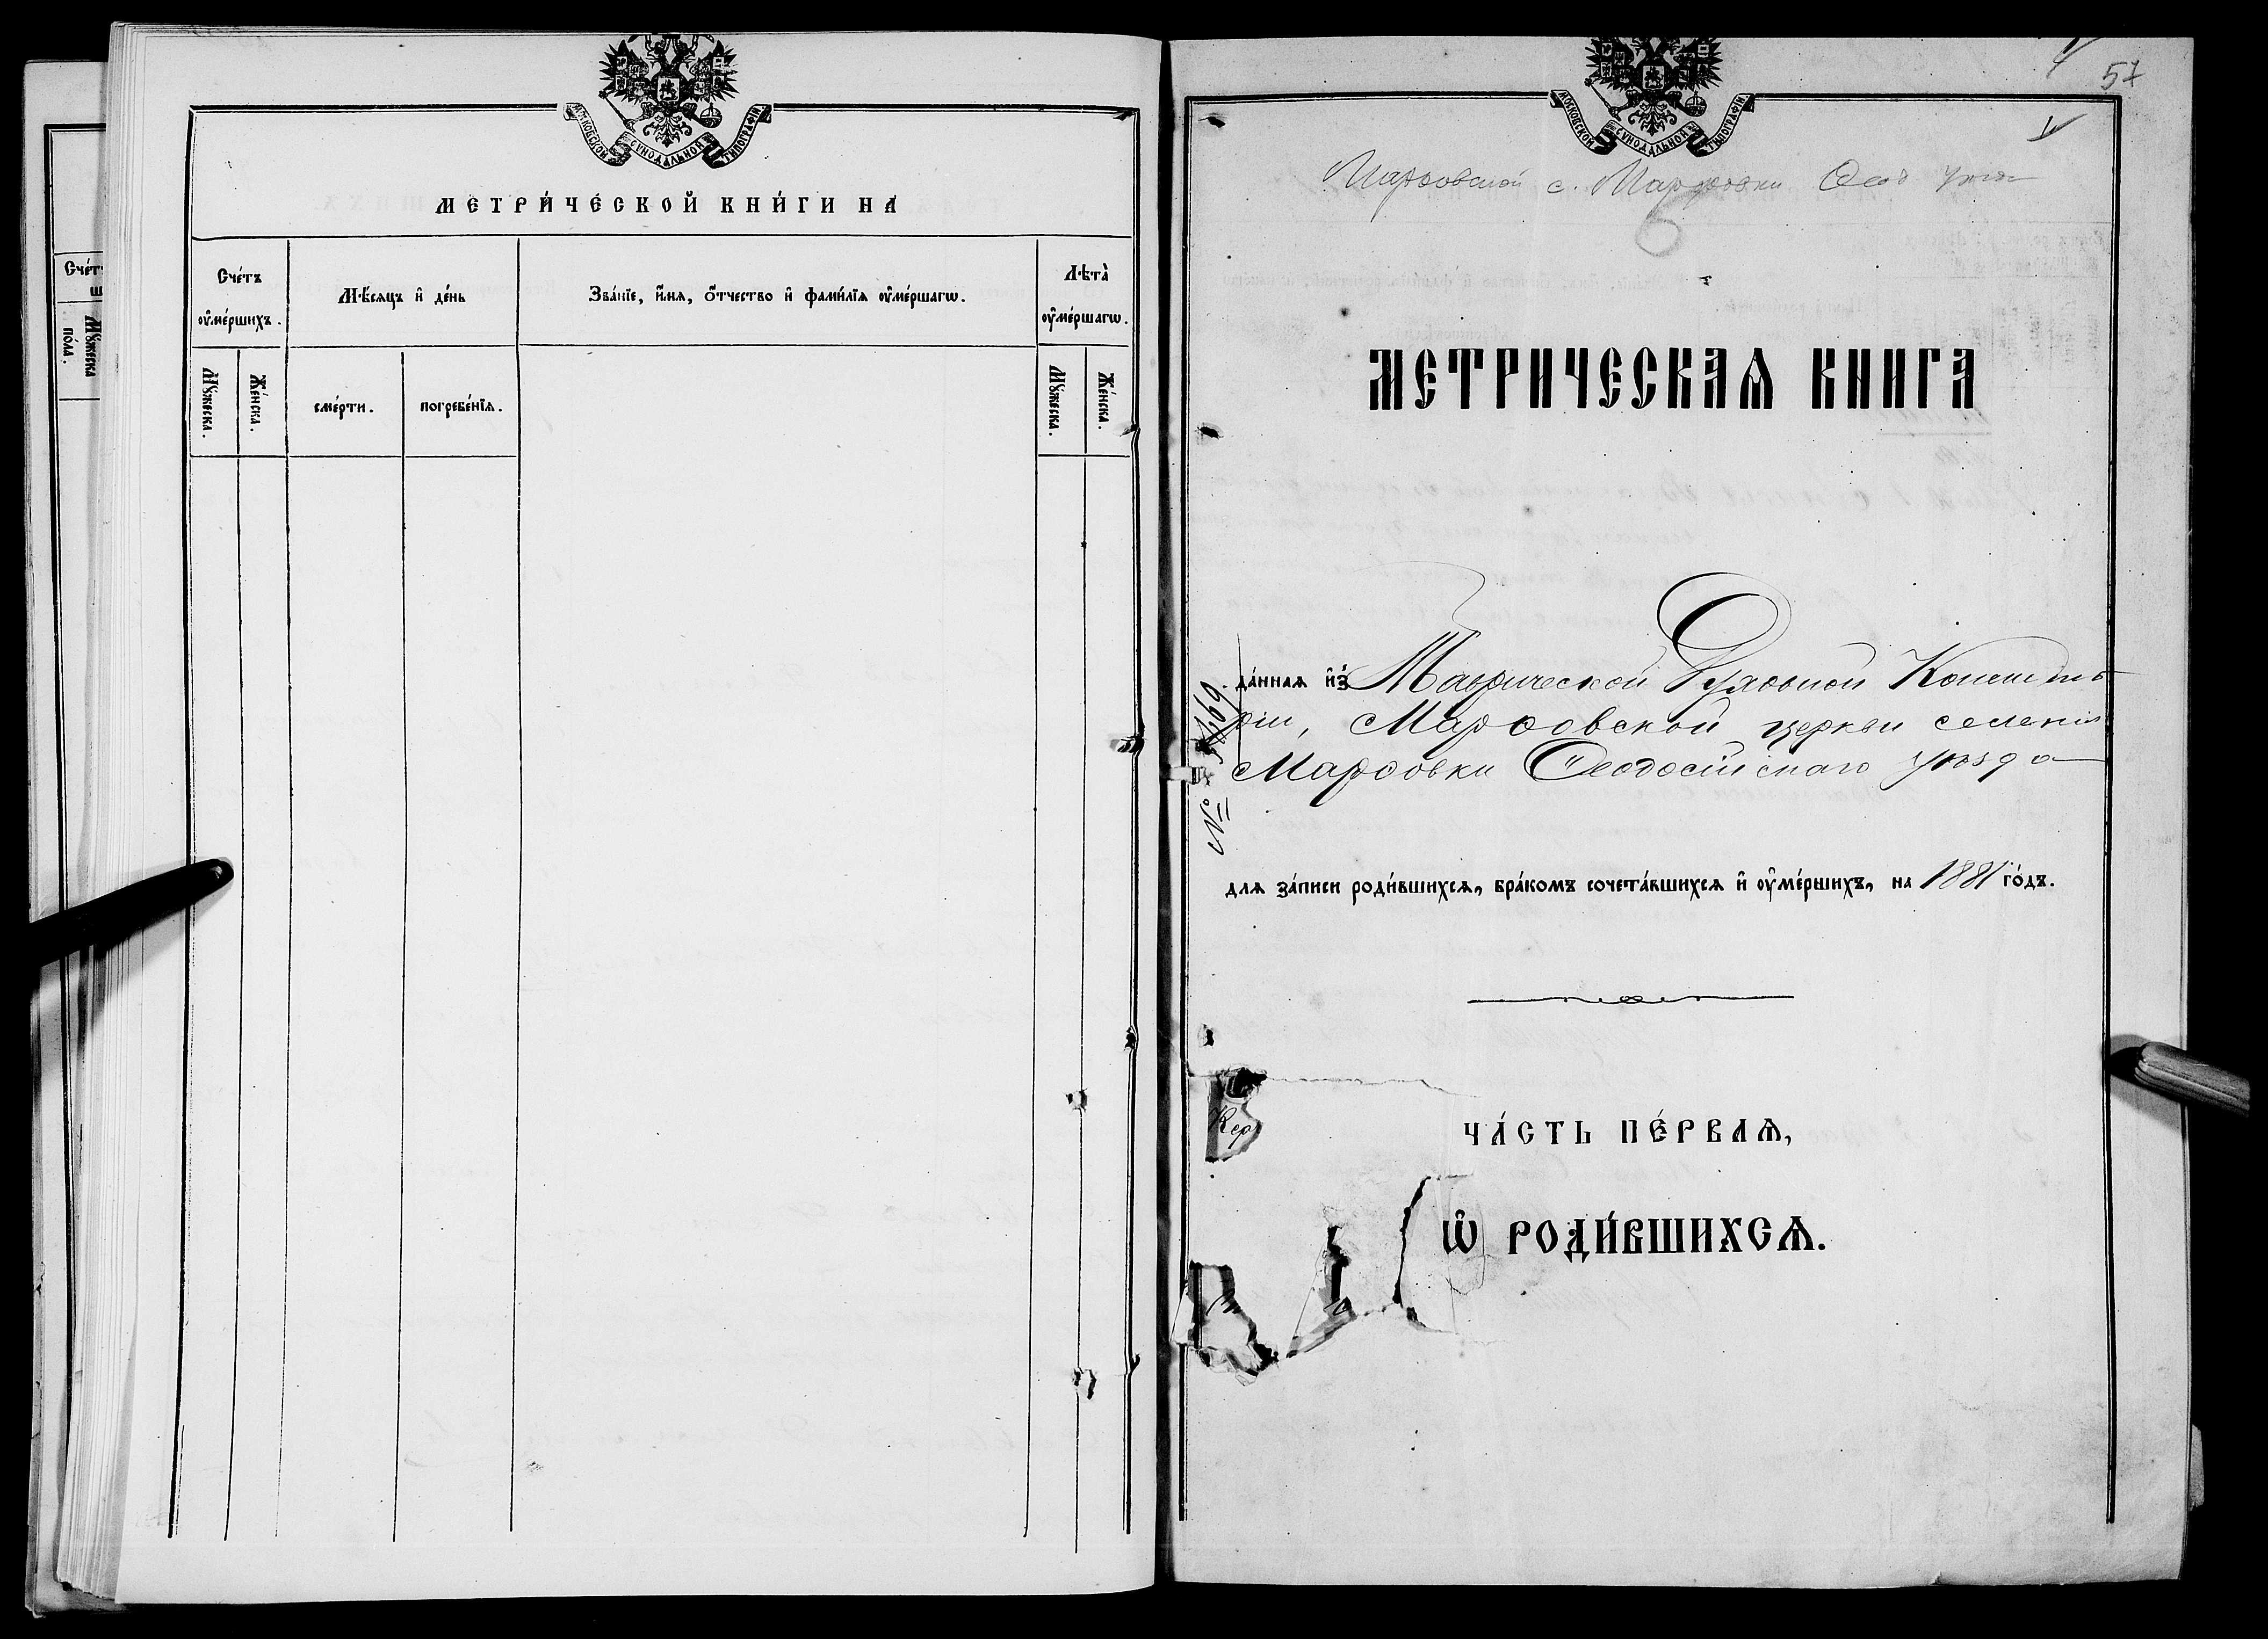 Счéтъ
Мꙋжеска
пóла.
МОСКОВСКОЙ СѴНОДАЛЬНОЙ ТИПОГРАФІИ
МЕТРИ́ЧЕСКОЙ КНИ́ГИ НА
Счéтъ ᲂу҆мéршихъ.
Мѣ́сяцъ и҆ дéнь
Звáнїе, и҆́мя, ѻ҆́тчество и҆ фамѝлїя ᲂу҆мéршагѡ.
Лѣтà ᲂу҆мéршагѡ.
Мꙋ́жеска.
Жéнска.
смéрти.
погребéнїя.
Мꙋ́жеска.
Жéнска.
57
МОСКОВСКОЙ СѴНОДАЛЬНОЙ ТИПОГРАФІИ
Марѳовской с. Марѳовки Ѳеод уѣз
6
МЕТРИЧЕСКАѦ КНИГА
дáнная и҆з̾ Таврической Духовной Консисто
ріи, Марѳовской церкви селенія
Марѳовки Ѳеодосійскаго уѣзда
№
для зáписи роди́вшихся, брáкомъ сочетáвшихся и҆ ᲂу҆мéршихъ, на 1881 гóдъ.
Кер
ЧÁСТЬ ПÉРВАѦ,
Ѽ РОДИ́ВШИХСѦ.